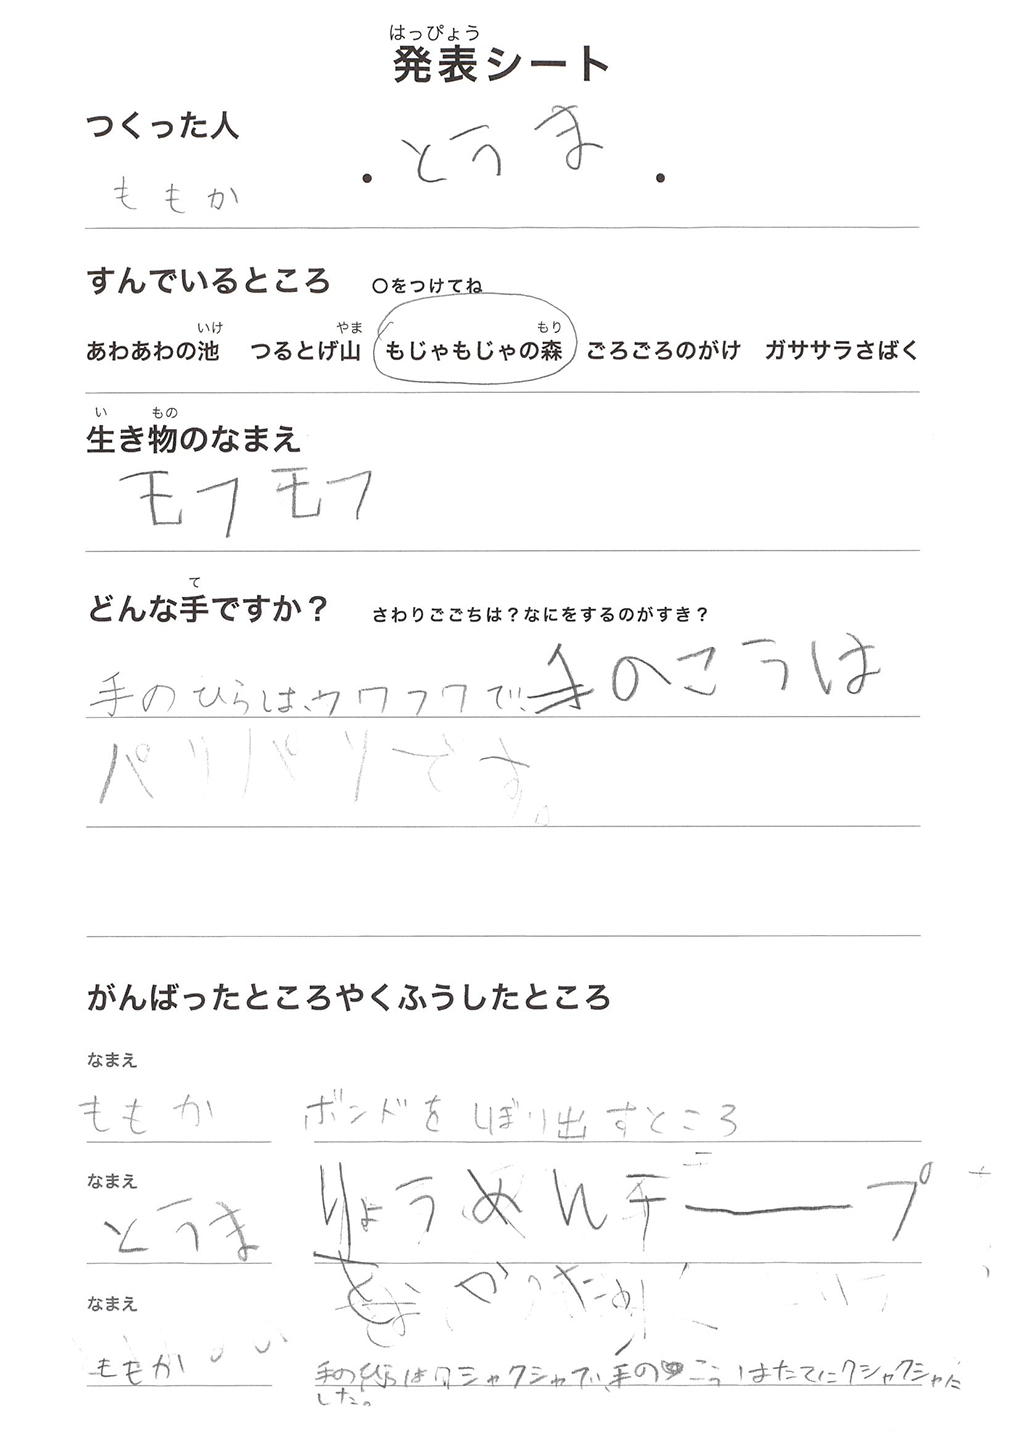 はっぴょう
発表シート
つくった人
ももか ・ とうま ・
すんでいるところ 〇をつけてね
いけ やま もり
あわあわの池 つるとげ山 もじゃもじゃの森 ごろごろのがけ ガササラさばく
い もの
生き物のなまえ
モフモフ
て
どんな手ですか？ さわりごごちは？なにをするのがすき？
手のひらは、ウワフワで、手のこうは
パリパリです。
がんばったところやくふうしたところ
なまえ
ももか ボンドをしぼり出すところ
なまえ
とうま りょうめんテープ
なまえ
ももか 手のひらはクシャクシャで、手のこうはたてにクシャクシャに
した。